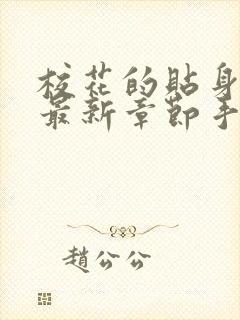 校花的貼身
最新章節手
趙公公